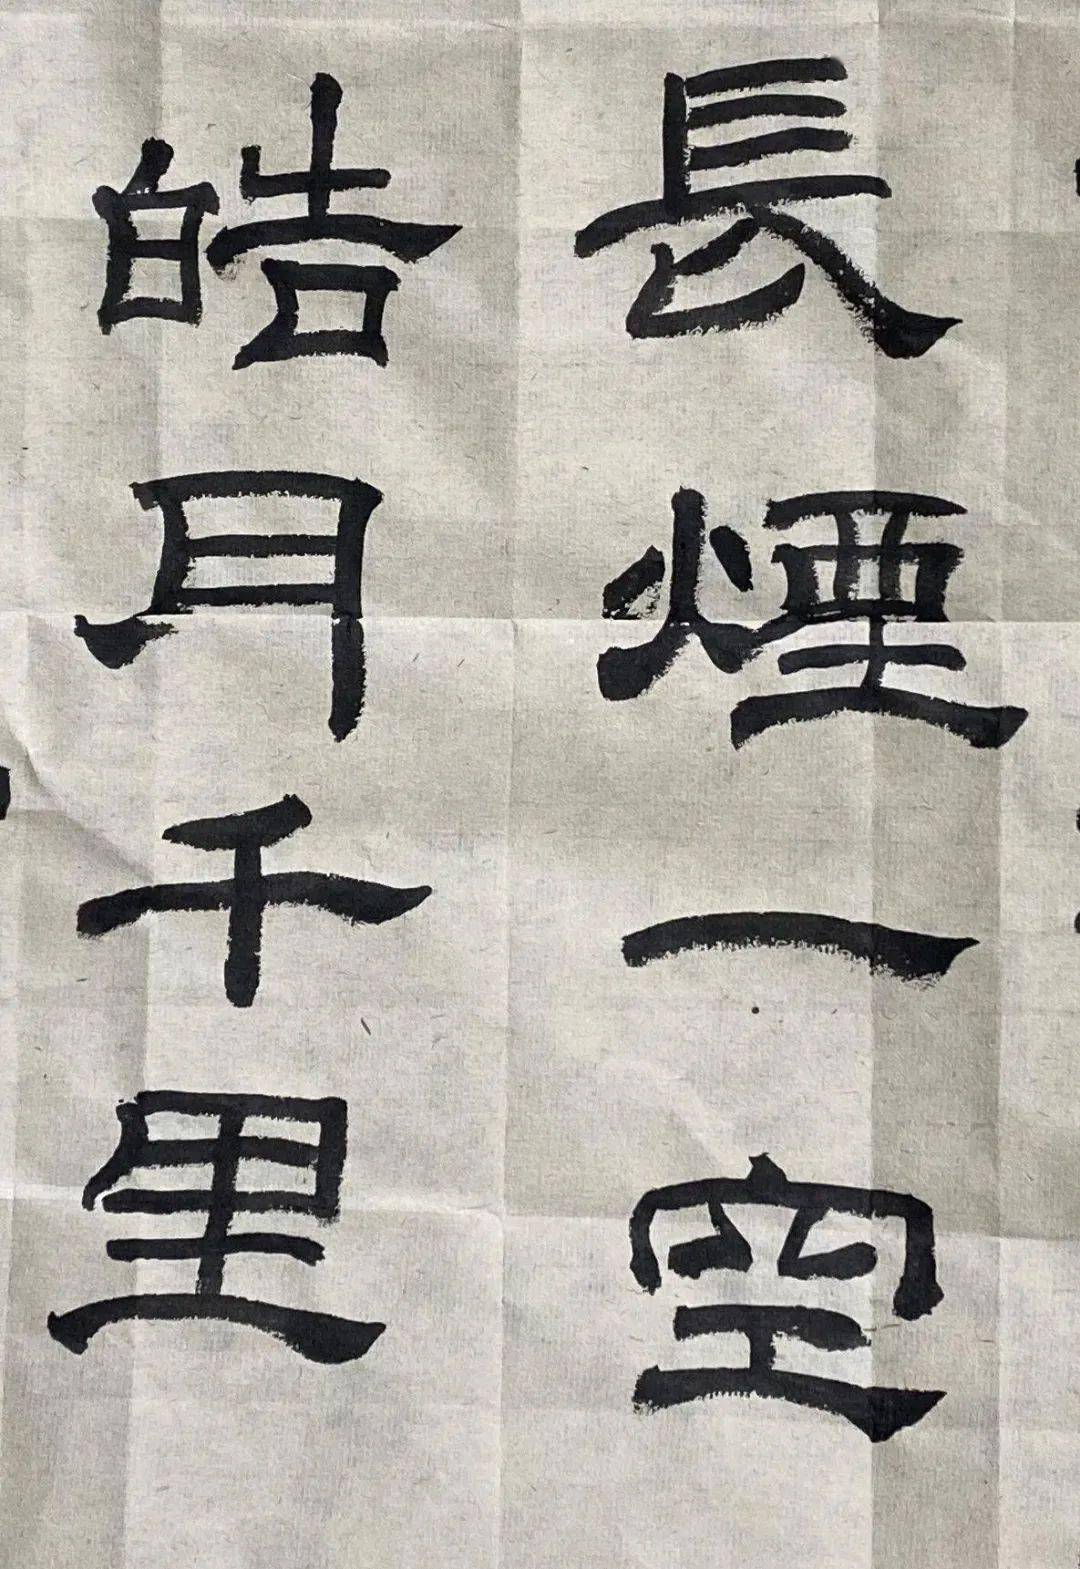 長煙一空
皓月千里